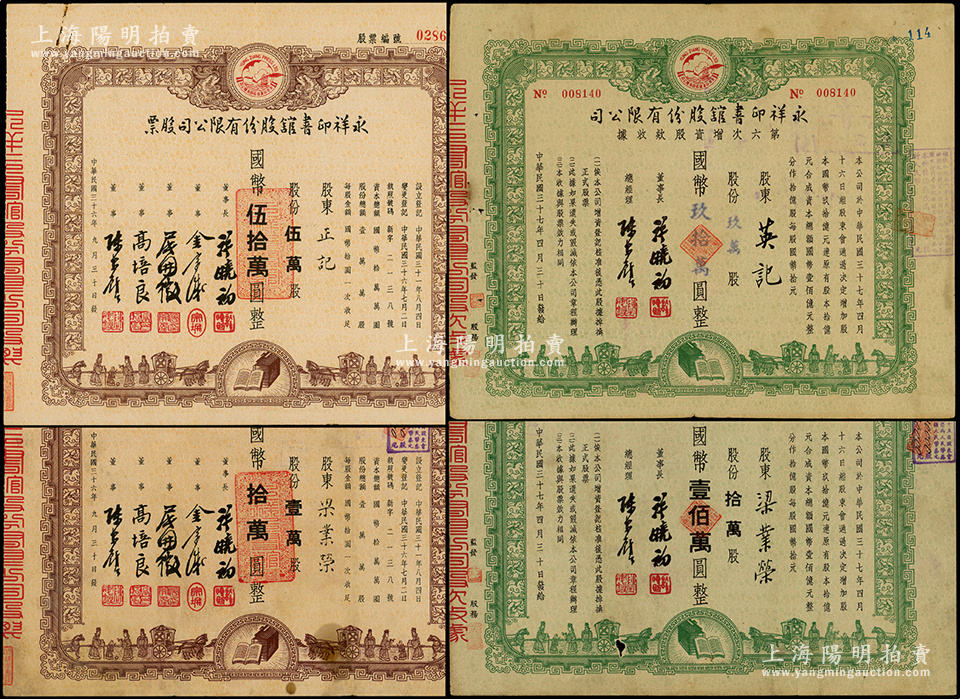 上海陽明拍賣
股票編號 0286
YUNG ZIANG PRESS LTD
永祥印書館股份有限公司股票
設立登記 中華民國三十一年八月四日
變更登記 中華民國三十六年七月二日
執照號碼 新字二一三八號
資本總額 國幣拾萬萬圓
股份總額 壹萬萬股
每股金額 國幣拾圓一次收足
股東 正記
股份 伍萬 股
國幣 伍拾萬 圓整
董事長
董事
董事 高培良
董事
中華民國三十六年九月三十日發
114
YUNG ZIANG PRESS LTD
Nº 008140
Nº 008140
永祥印書館股份有限公司
第六次增資股款收據
本公司於中華民國三十七年四月
十六日經股東會通過決定增加股
本國幣玖拾億元連原有股本拾億
元合成資本總額國幣壹佰億元整
分作拾億股每股國幣拾元
股東 英記
股份 玖萬 股
國幣 玖拾萬 圓整
董事長 蔣曉初
總經理
㈠俟本公司增資登記核准後憑此股據掉換
正式股票
㈡此據如果遺失或毀滅依本公司章程辦理
㈢本收據與股票效力相同
中華民國三十七年四月三十日發給
監發
股務
上海陽明拍賣
www.yangmingauction.com
設立登記 中華民國三十一年八月四日
變更登記 中華民國三十六年七月二日
執照號碼 新字二一三八號
資本總額 國幣拾萬萬圓
股份總額 壹萬萬股
每股金額 國幣拾圓一次收足
股東 梁業榮
股份 壹萬 股
國幣 拾萬 圓整
董事長
董事
董事 高培良
董事
中華民國三十六年九月三十日發
本公司於中華民國三十七年四月
十六日經股東會通過決定增加股
本國幣玖拾億元連原有股本拾億
元合成資本總額國幣壹佰億元整
分作拾億股每股國幣拾元
股東 梁業榮
股份 拾萬 股
國幣 壹佰萬 圓整
董事長 蔣曉初
總經理
㈠俟本公司增資登記核准後憑此股據掉換
正式股票
㈡此據如果遺失或毀滅依本公司章程辦理
㈢本收據與股票效力相同
中華民國三十七年四月三十日發給
監發
股務
上海陽明拍賣
www.yangmingauction.com